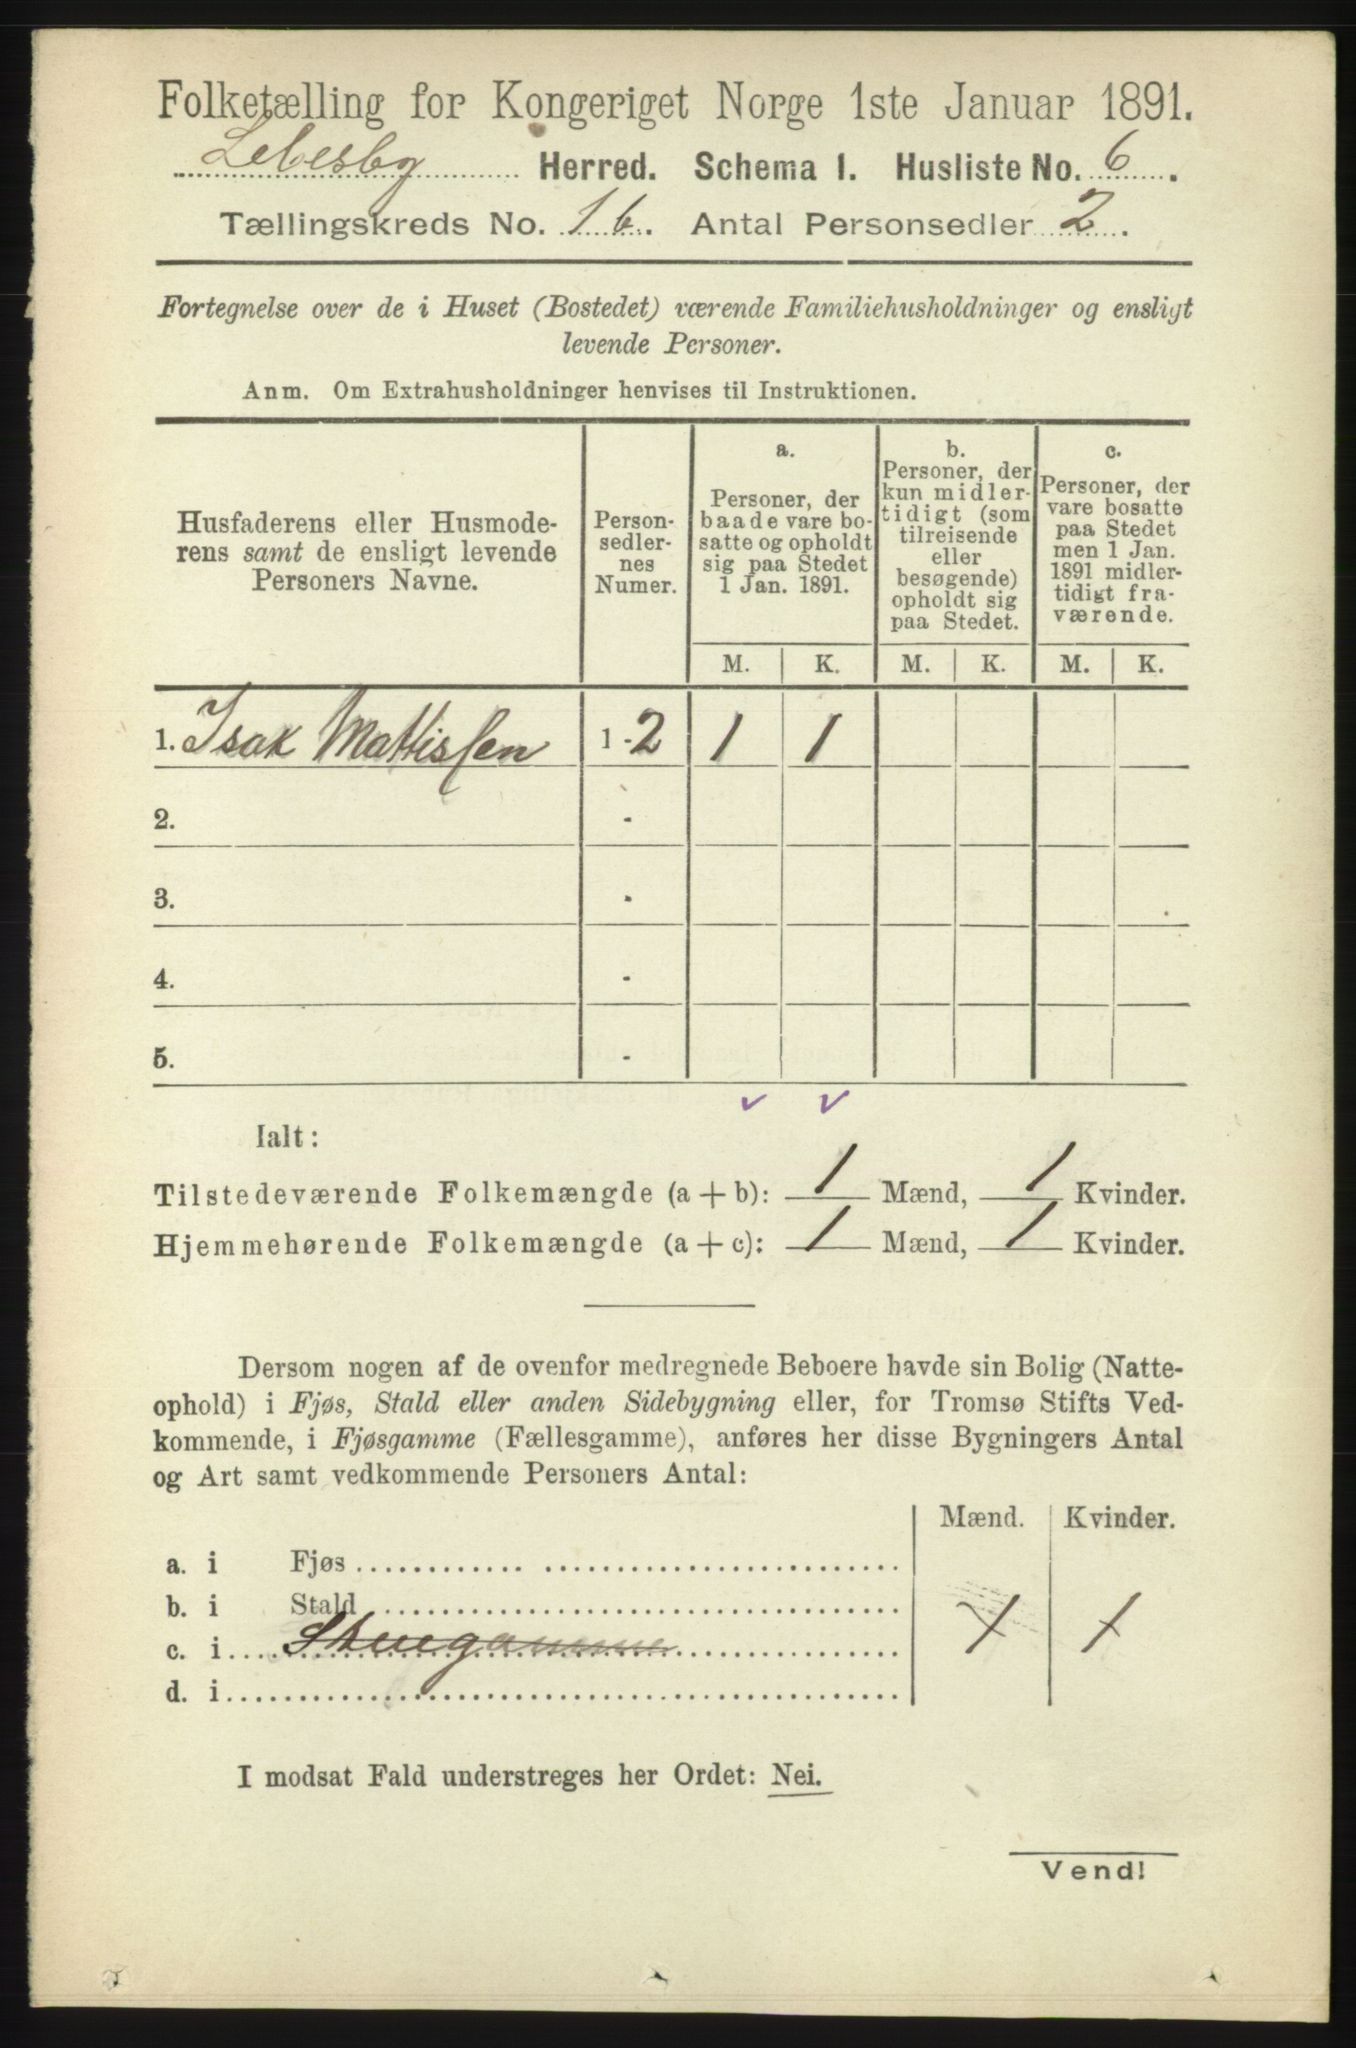 Folketælling for Kongeriget Norge 1ste Januar 1891.
Lebesby Herred. Schema I. Husliste No. 6.
Tællingskreds No. 16. Antal Personsedler 2.
Fortegnelse over de i Huset (Bostedet) værende Familiehusholdninger og ensligt
levende Personer.
Anm. Om Extrahusholdninger henvises til Instruktionen.
Husfaderens eller Husmode-
rens samt de ensligt levende
Personers Navne.
Person-
sedler-
nes
Numer.
a.
Personer, der
baade vare bo-
satte og opholdt
sig paa Stedet
1 Jan. 1891.
b.
Personer, der
kun midler-
tidigt (som
tilreisende
eller
besøgende)
opholdt sig
paa Stedet.
c.
Personer, der
vare bosatte
paa Stedet
men 1 Jan.
1891 midler-
tidigt fra-
værende.
M. K. M. K. M. K.
1. Isak Mattissen 1-2 1 1
2. -
3. -
4. -
5. -
Ialt:
Tilstedeværende Folkemængde (a + b): 1 Mænd, 1 Kvinder.
Hjemmehørende Folkemængde (a + c): 1 Mænd, 1 Kvinder.
Dersom nogen af de ovenfor medregnede Beboere havde sin Bolig (Natte-
ophold) i Fjøs, Stald eller anden Sidebygning eller, for Tromsø Stifts Ved-
kommende, i Fjøsgamme (Fællesgamme), anføres her disse Bygningers Antal
og Art samt vedkommende Personers Antal:
Mænd. Kvinder.
a. i Fjøs
b. i Stald
c. i 1 1
d. i
I modsat Fald understreges her Ordet: Nei.
Vend!